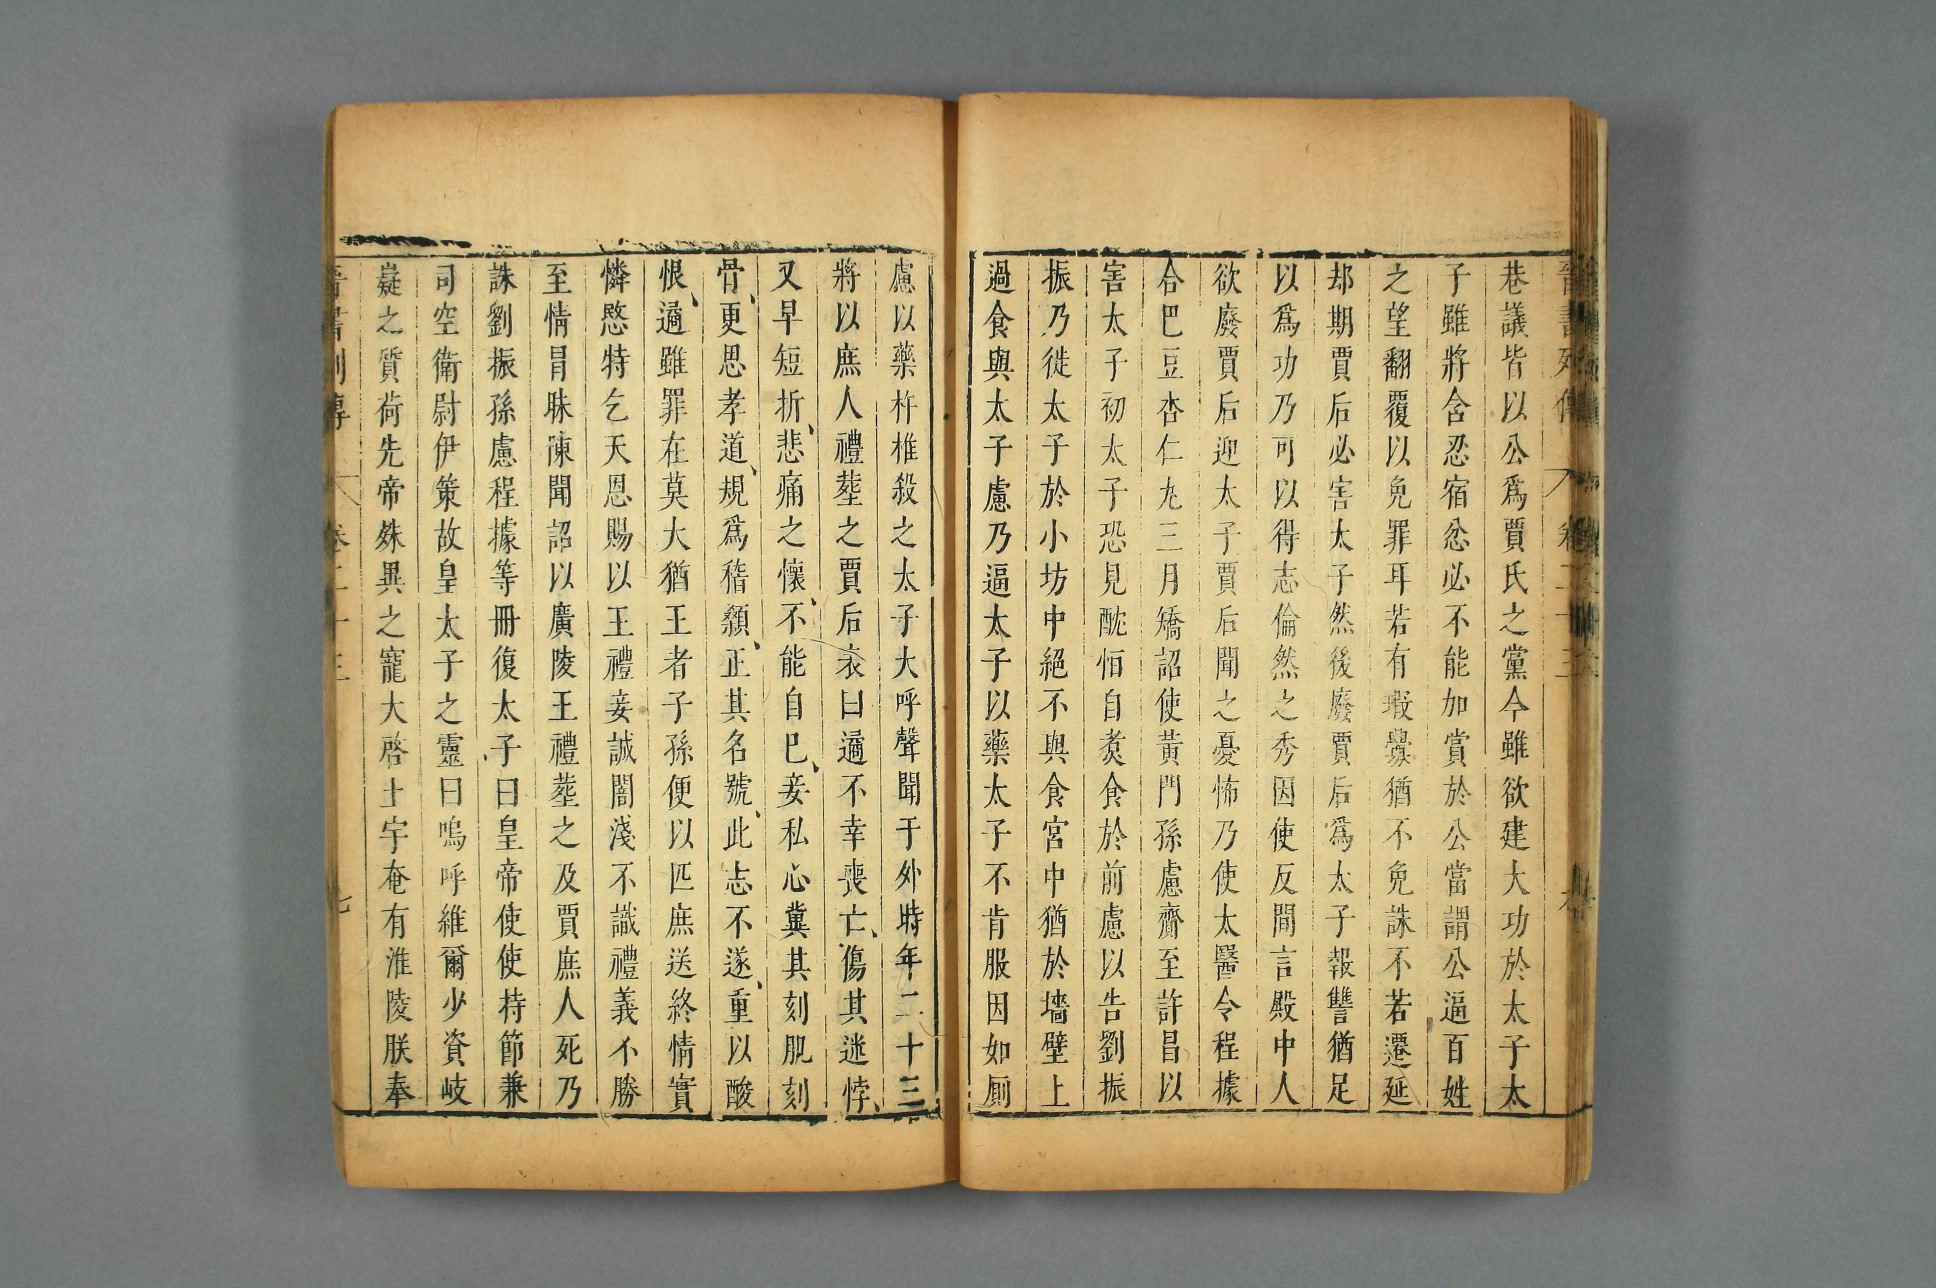 晉書列傳 卷二十三
巷議皆以公爲賈氏之黨今雖欲建大功於太子太
子雖將含忍宿忿必不能加賞於公當謂公逼百姓
之望翻覆以免罪耳若有瑕舋猶不免誅不若遷延
却期賈后必害太子然後廢賈后爲太子報讐猶足
以爲功乃可以得志倫然之秀因使反間言殿中人
欲廢賈后迎太子賈后聞之憂怖乃使太醫令程據
合巴豆杏仁丸三月矯詔使黃門孫慮齎至許昌以
害太子初太子恐見酖恒自煑食於前慮以告劉振
振乃徙太子於小坊中絕不與食宮中猶於墻壁上
過食與太子慮乃逼太子以藥太子不肯服因如厠
慮以藥杵椎殺之太子大呼聲聞于外時年二十三
將以庶人禮塟之賈后表曰遹不幸喪亡傷其迷悖
又早短折悲痛之懷不能自巳妾私心冀其刻肌刻
骨更思孝道規爲稽顙正其名號此志不遂重以酸
恨遹雖罪在莫大猶王者子孫便以匹庶送終情實
憐愍特乞天恩賜以王禮妾誠闇淺不識禮義不勝
至情冒昧陳聞詔以廣陵王禮塟之及賈庶人死乃
誅劉振孫慮程據等冊復太子曰皇帝使使持節兼
司空衛尉伊策故皇太子之靈曰嗚呼維爾少資岐
嶷之質荷先帝殊異之寵大啓土宇奄有淮陵朕奉
晉書列傳 卷二十三 七